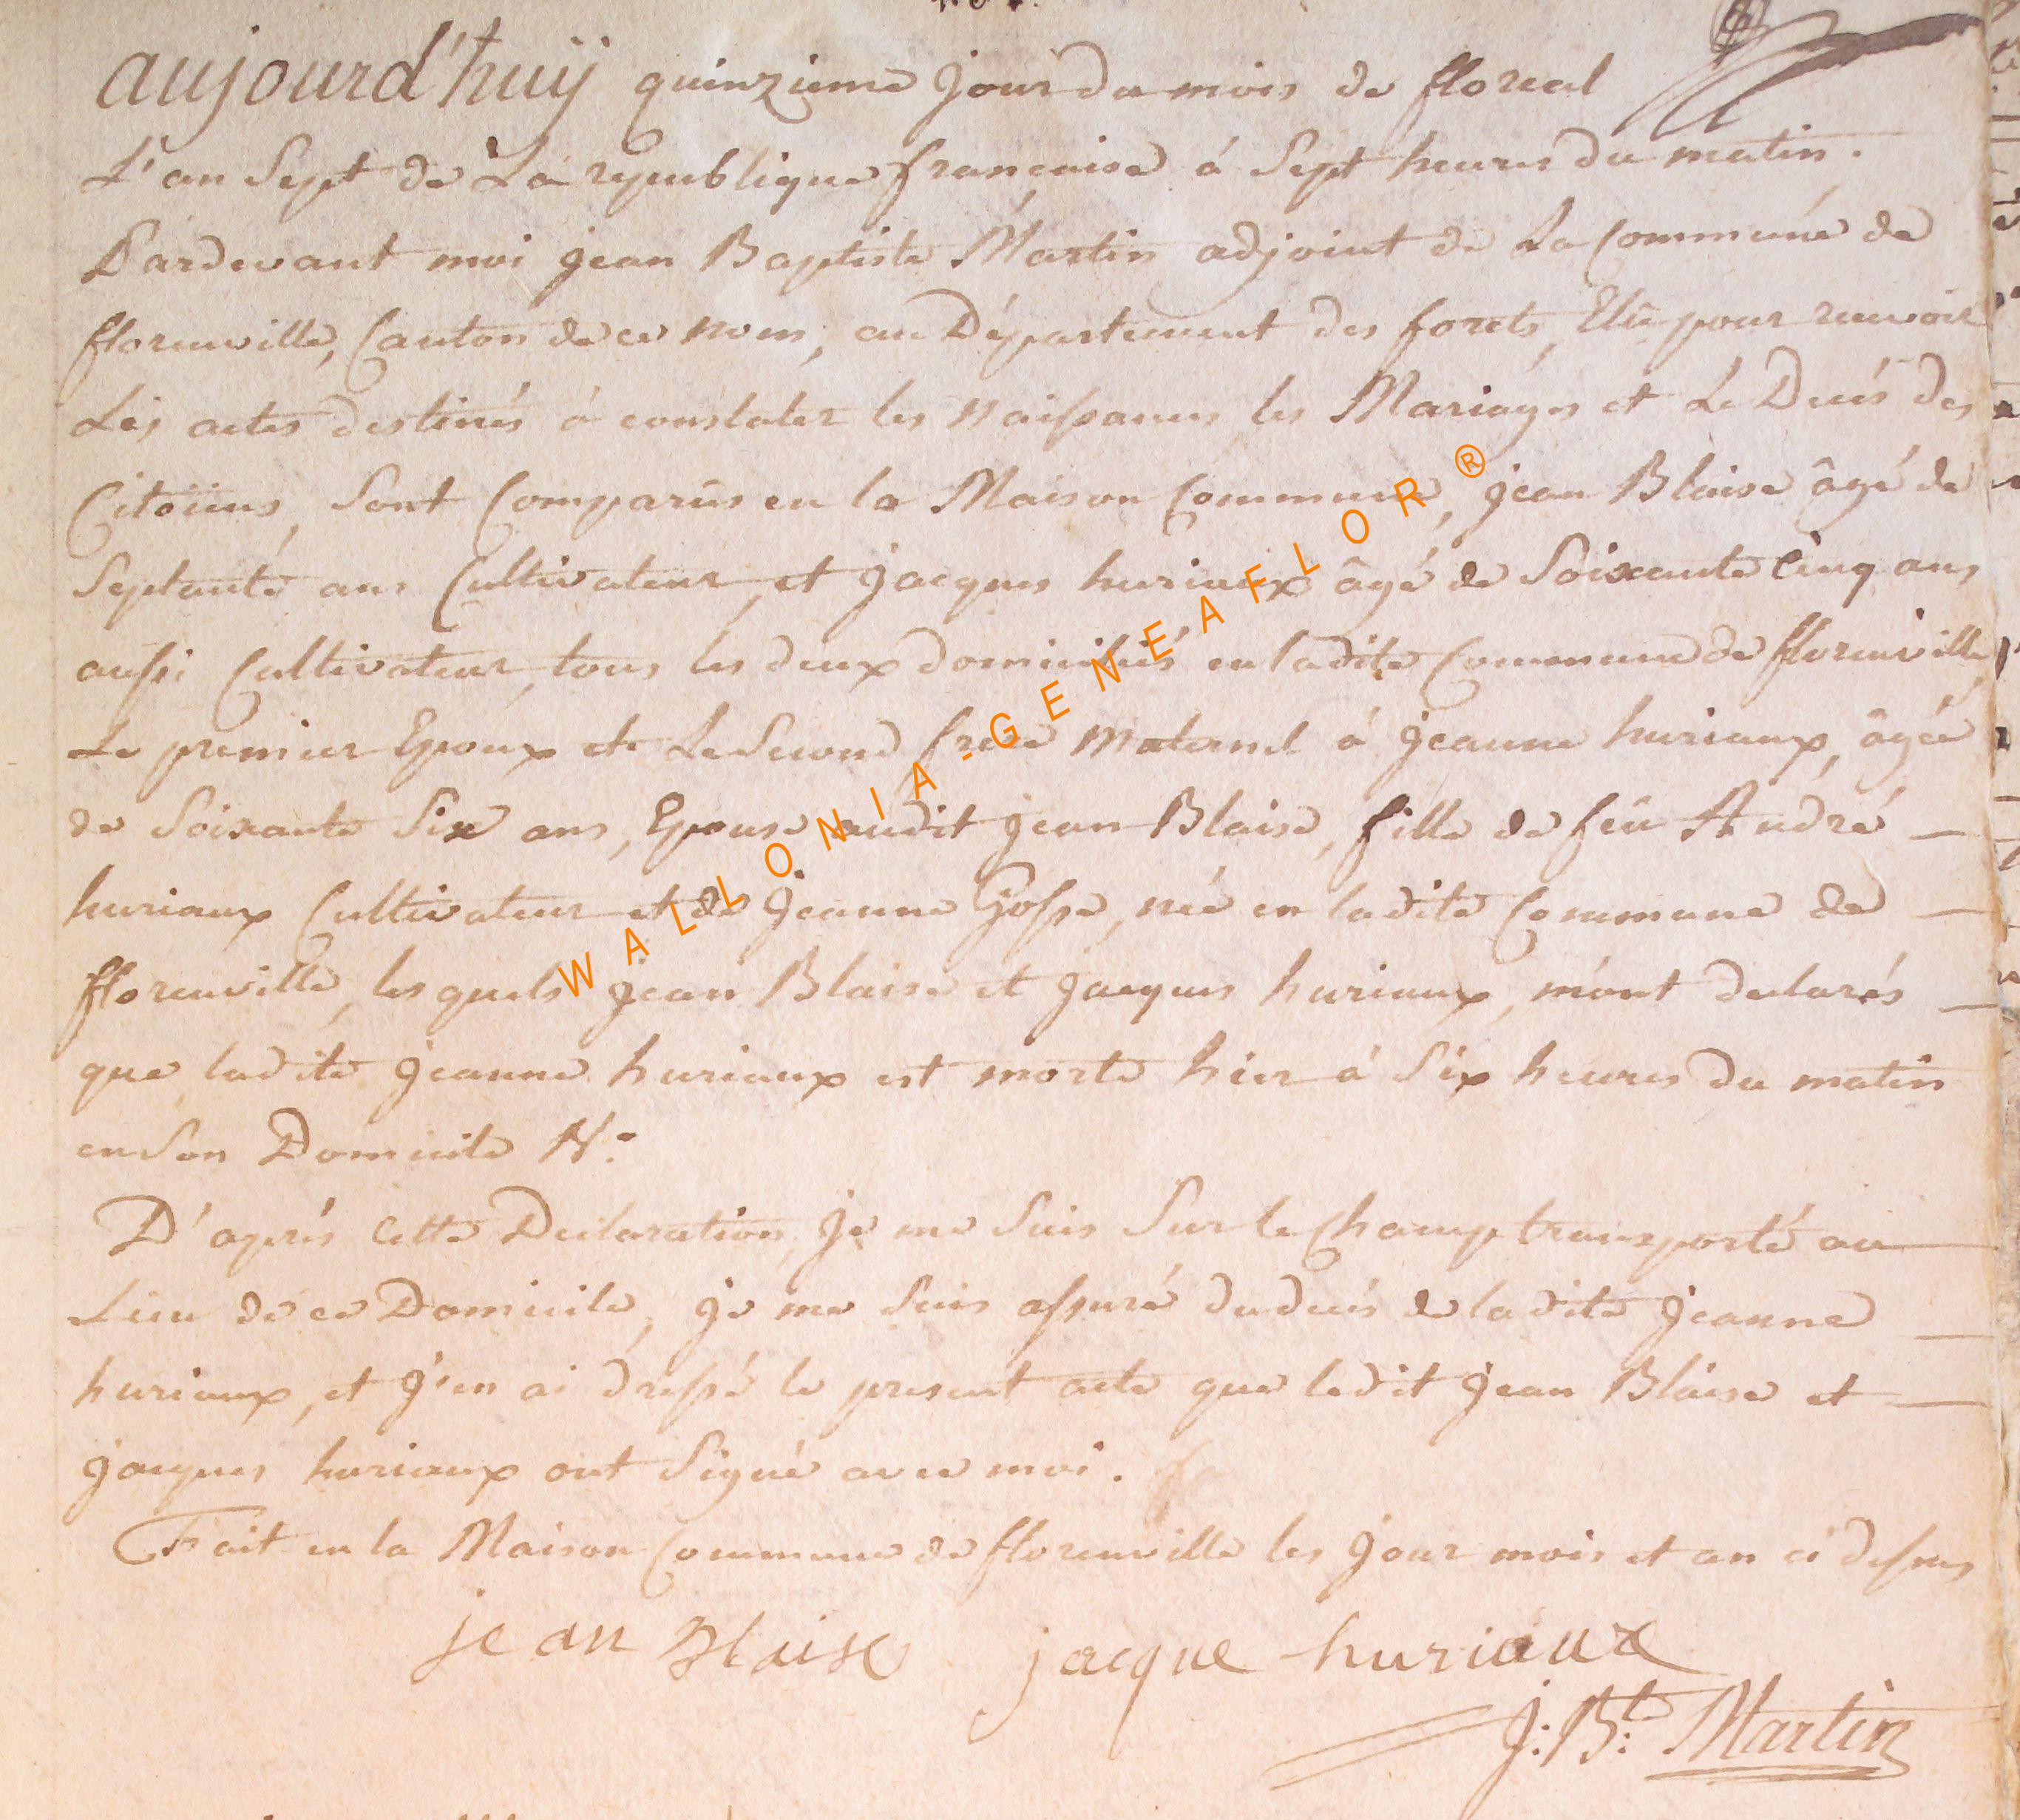 aujourd'huÿ quinzieme jour du mois de floreal
L'an Sept de La republique française á Sept heures du matin.
Pardevant moi jean Baptiste Martin adjoint de La Commune de
florenville, Canton de ce nom, au Département des forets, Elû pour recevoir
Les actes destinés á constater les naissances, les Mariages et Le Decés des
Citoïens, Sont Comparûs en la Maison Commune, jean Blaise âgé de
Septante ans Cultivateur, et jacques huriaux âgé de Soixante Cinq ans
aussi Cultivateur, tous les deux domiciliés en ladite Commune de florenville,
Le premier Epoux et Le Second frere maternel á jeanne huriaux, âgée
de Soixante Six ans, Epouse audit jean Blaise, fille de feû André
huriaux Cultivateur et de jeanne Gosse, née en ladite Commune de
florenville, lesquels jean Blaise et jacques huriaux, m'ont declarés
que ladite jeanne huriaux est morte hier á Six heures du matin
en Son Domicile N.°
D'aprés Cette Declaration, je me Suis Sur le Champ transporté au
Lieu de ce Domicile, je me Suis assuré du decés de ladite jeanne
huriaux, et j'en ai dressé le present acte que ledit jean Blaise et
jacques huriaux ont Signé avec moi.
Fait en la Maison Commune de florenville les jour mois et an ci dessus
jean Blaise jacque huriaux
J: Bt: Martin
WALLONIA-GENEAFLOR®